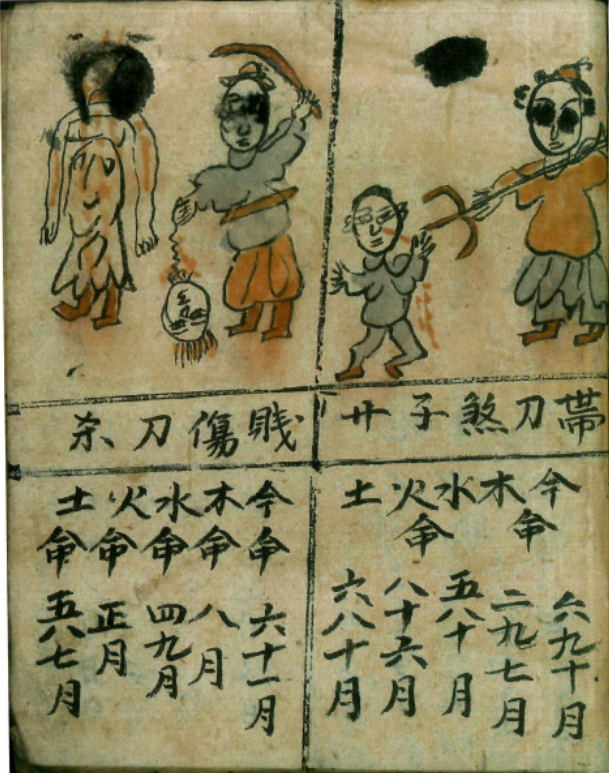 帯刀煞子廾
今命六九十月
木二九七月
水五八十月
火命八十六月
土六八十月
賎傷刀杀
今命六十一月
木命八月
水命四九月
火命正月
土命五八七月